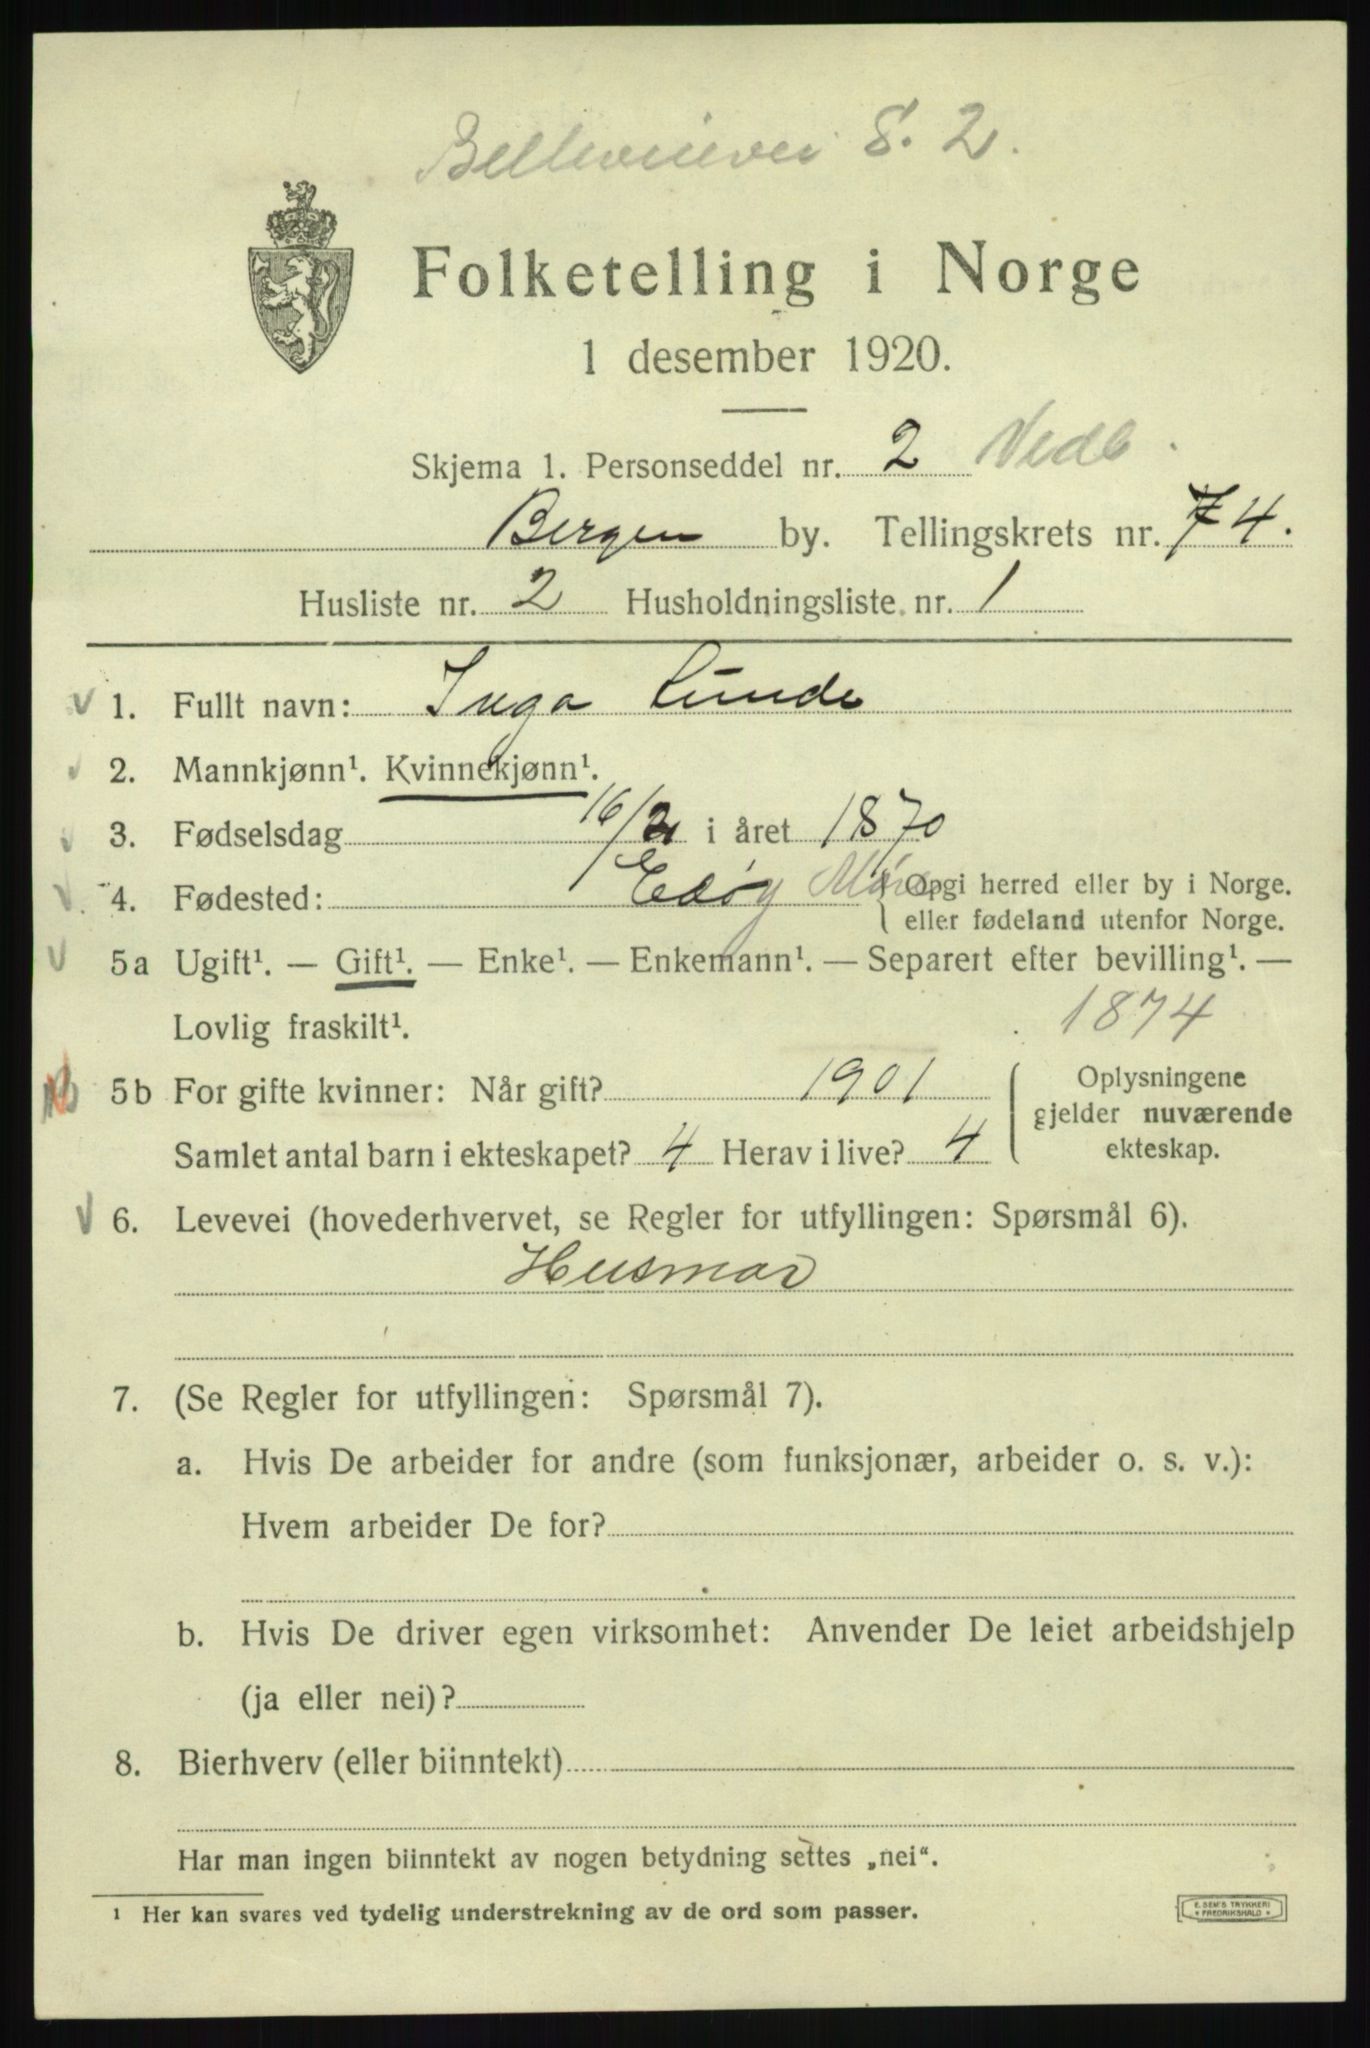 Bellevuevei 8. 2.
Folketelling i Norge
1 desember 1920.
Skjema 1. Personseddel nr. 2 Vedb.
Bergen by. Tellingskrets nr. 74.
Husliste nr. 2 Husholdningsliste nr. 1
1. Fullt navn: Inga Lunde
2. Mannkjønn¹. Kvinnekjønn¹.
3. Fødselsdag 16/2 i året 1870
4. Fødested: Edøy Møre { Opgi herred eller by i Norge.
eller fødeland utenfor Norge.
5a Ugift¹. — Gift¹. — Enke¹. — Enkemann¹. — Separert efter bevilling¹. —
Lovlig fraskilt¹. 1874
5b For gifte kvinner: Når gift? 1901
Samlet antal barn i ekteskapet? 4 Herav i live? 4
Oplysningene
gjelder nuværende
ekteskap.
6. Levevei (hovederhvervet, se Regler for utfyllingen: Spørsmål 6).
Husmor
7. (Se Regler for utfyllingen: Spørsmål 7).
a. Hvis De arbeider for andre (som funksjonær, arbeider o. s. v.):
Hvem arbeider De for?
b. Hvis De driver egen virksomhet: Anvender De leiet arbeidshjelp
(ja eller nei)?
8. Bierhverv (eller biinntekt)
Har man ingen biinntekt av nogen betydning settes „nei“.
¹ Her kan svares ved tydelig understrekning av de ord som passer.
E. SEM'S TRYKKERI
* FREDRIKSHALD *